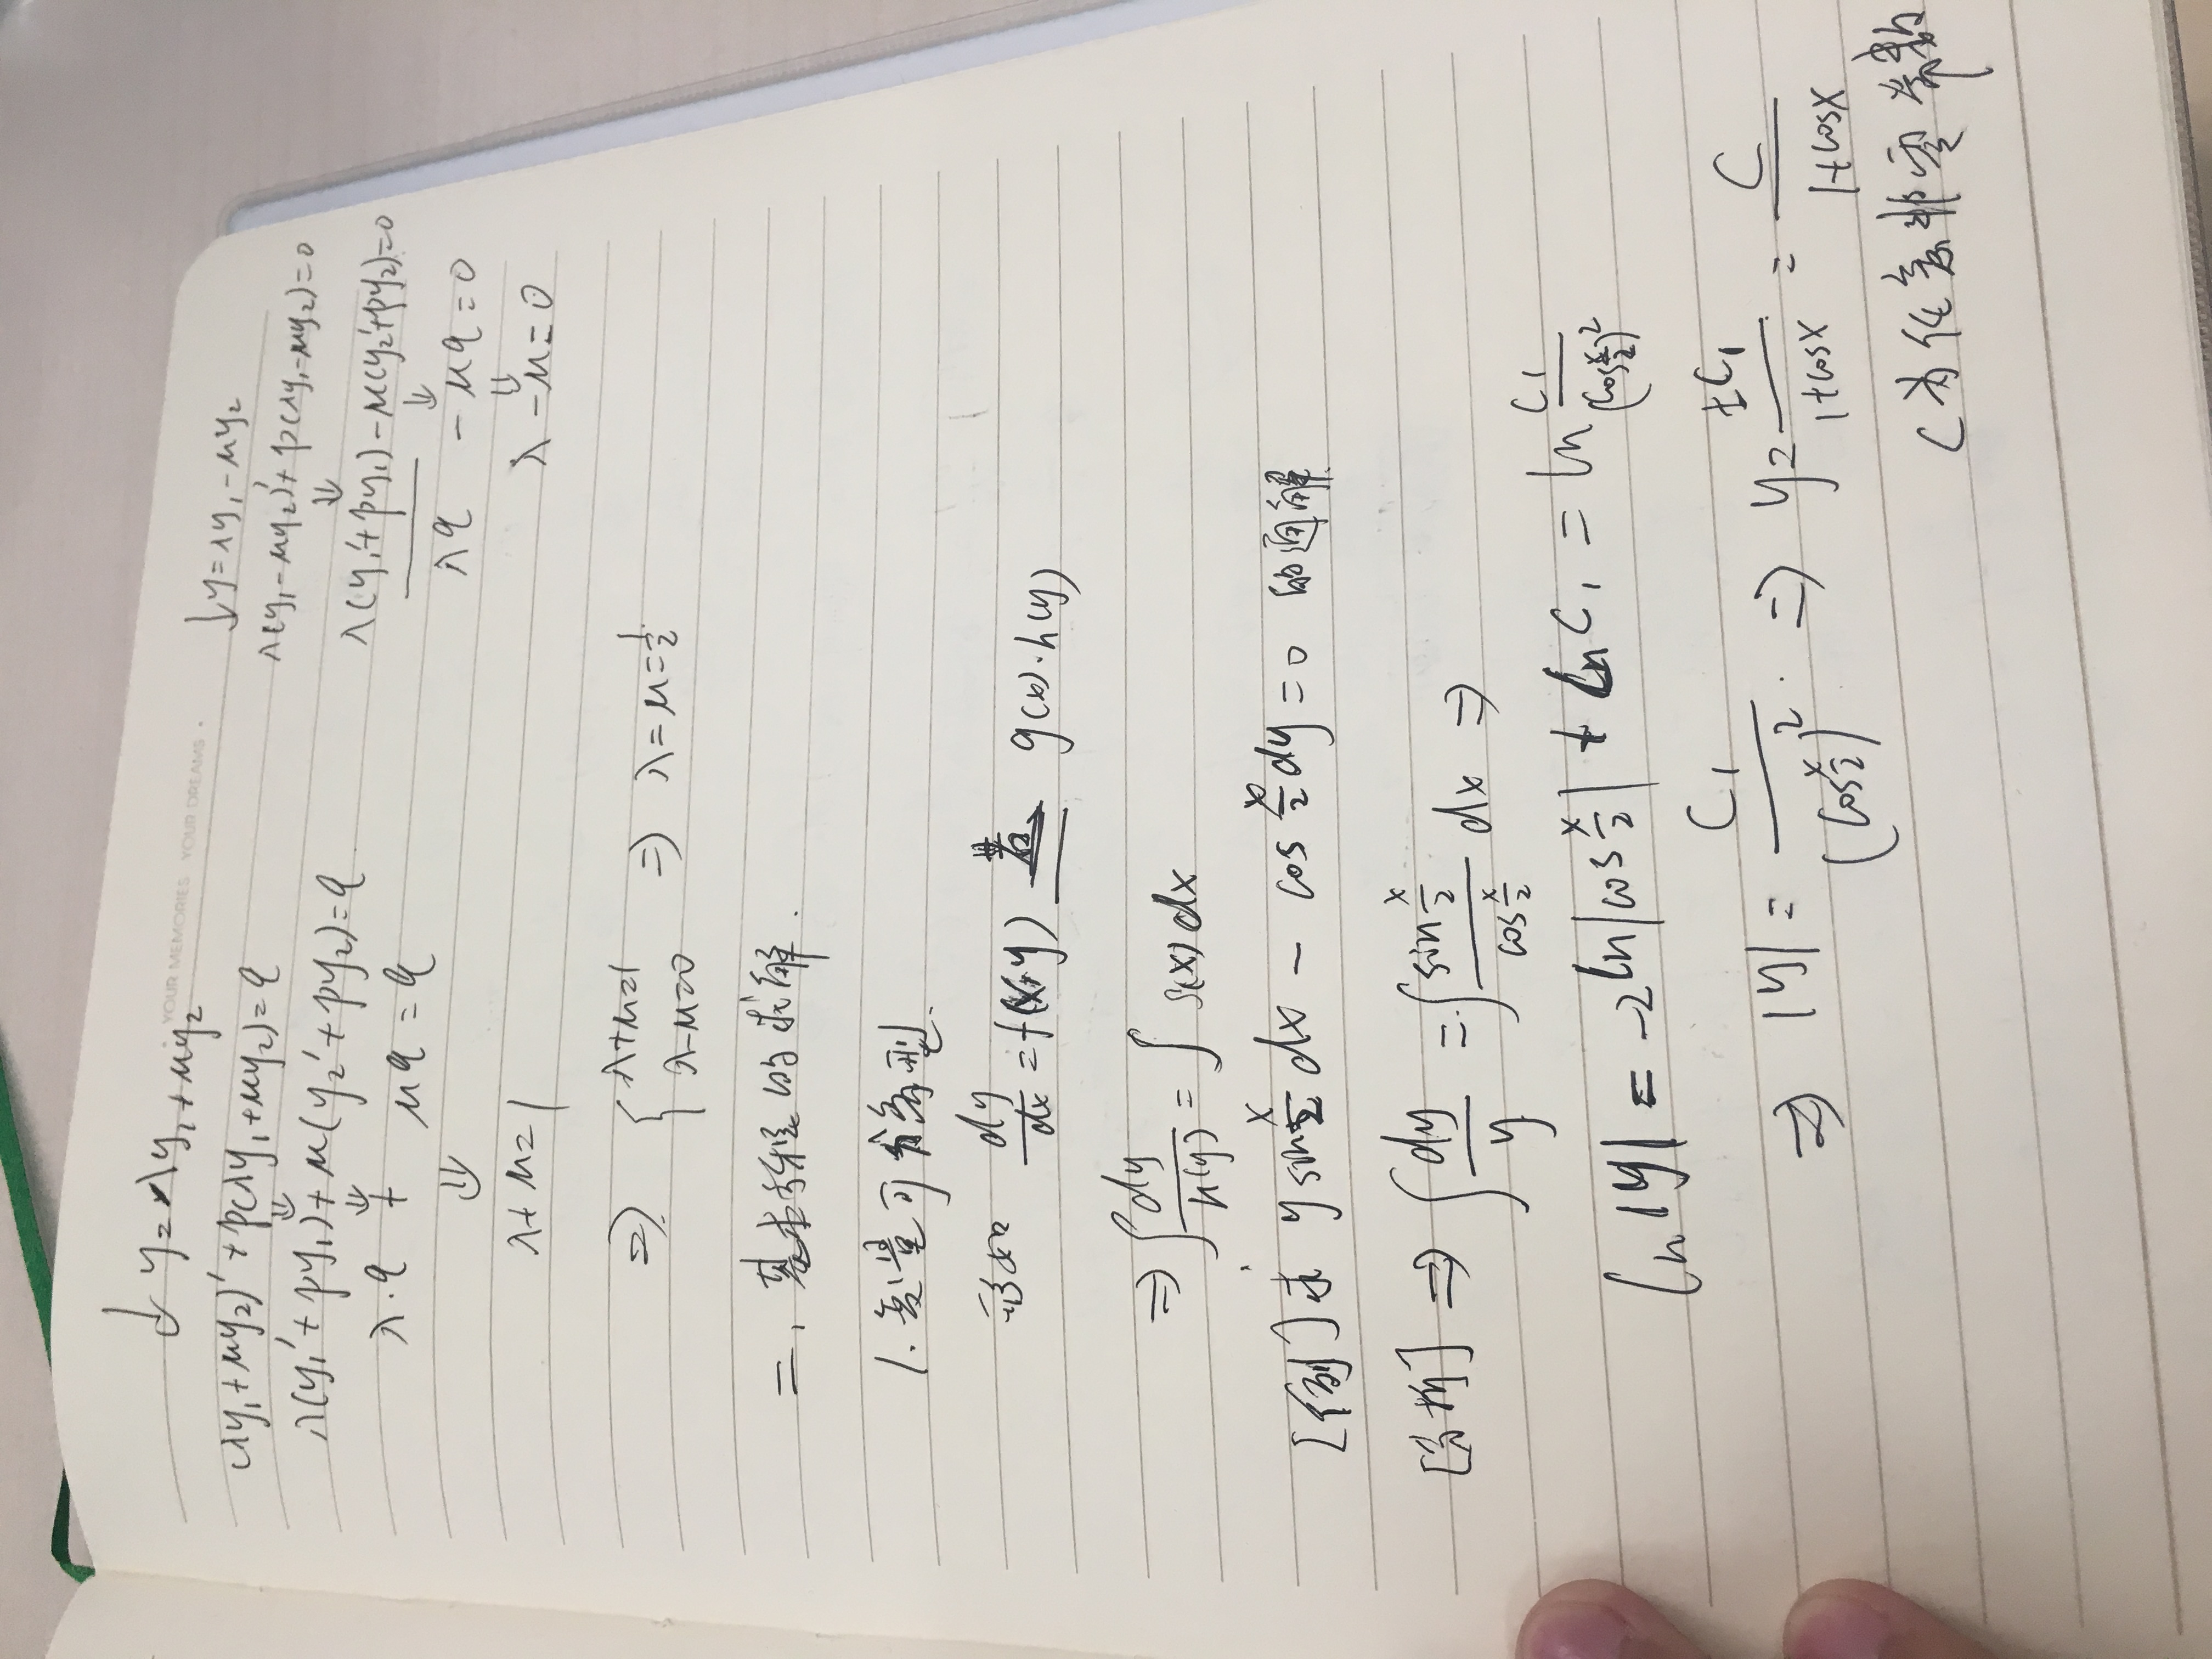 YOUR MEMORIES YOUR DREAMS.
↓ y=λy₁+μy₂
(λy₁+μy₂)'+p(λy₁+μy₂)=q
⇓
λ(y₁'+py₁)+μ(y₂'+py₂)=q
⇓
λ·q + μq = q
⇓
λ+μ=1
↓ y=λy₁-μy₂
λ(y₁-μy₂)'+p(λy₁-μy₂)=0
⇓
λ(y₁'+py₁)-μ(y₂'+py₂)=0
⇓
λq - μq=0
⇓
λ-μ=0
⇒ { λ+μ=1 λ-μ=0 ⇒ λ=μ=1/2
二、基本方程的求解.
1.变量可分离型.
形如 dy/dx=f(x,y) = g(x)·h(y)
⇒ ∫dy/h(y) = ∫g(x)dx
[例] 求 y sin x/2 dx - cos x/2 dy=0 的通解.
[分析] ⇒ ∫dy/y = ∫ sin x/2 / cos x/2 dx ⇒
ln|y| = -2ln|cos x/2| + lnC₁ = ln C₁/(cos x/2)²
⇒ |y| = C₁/(cos x/2)². ⇒ y= ±C₁/1+cosx = C/1+cosx
C为任意非零常数